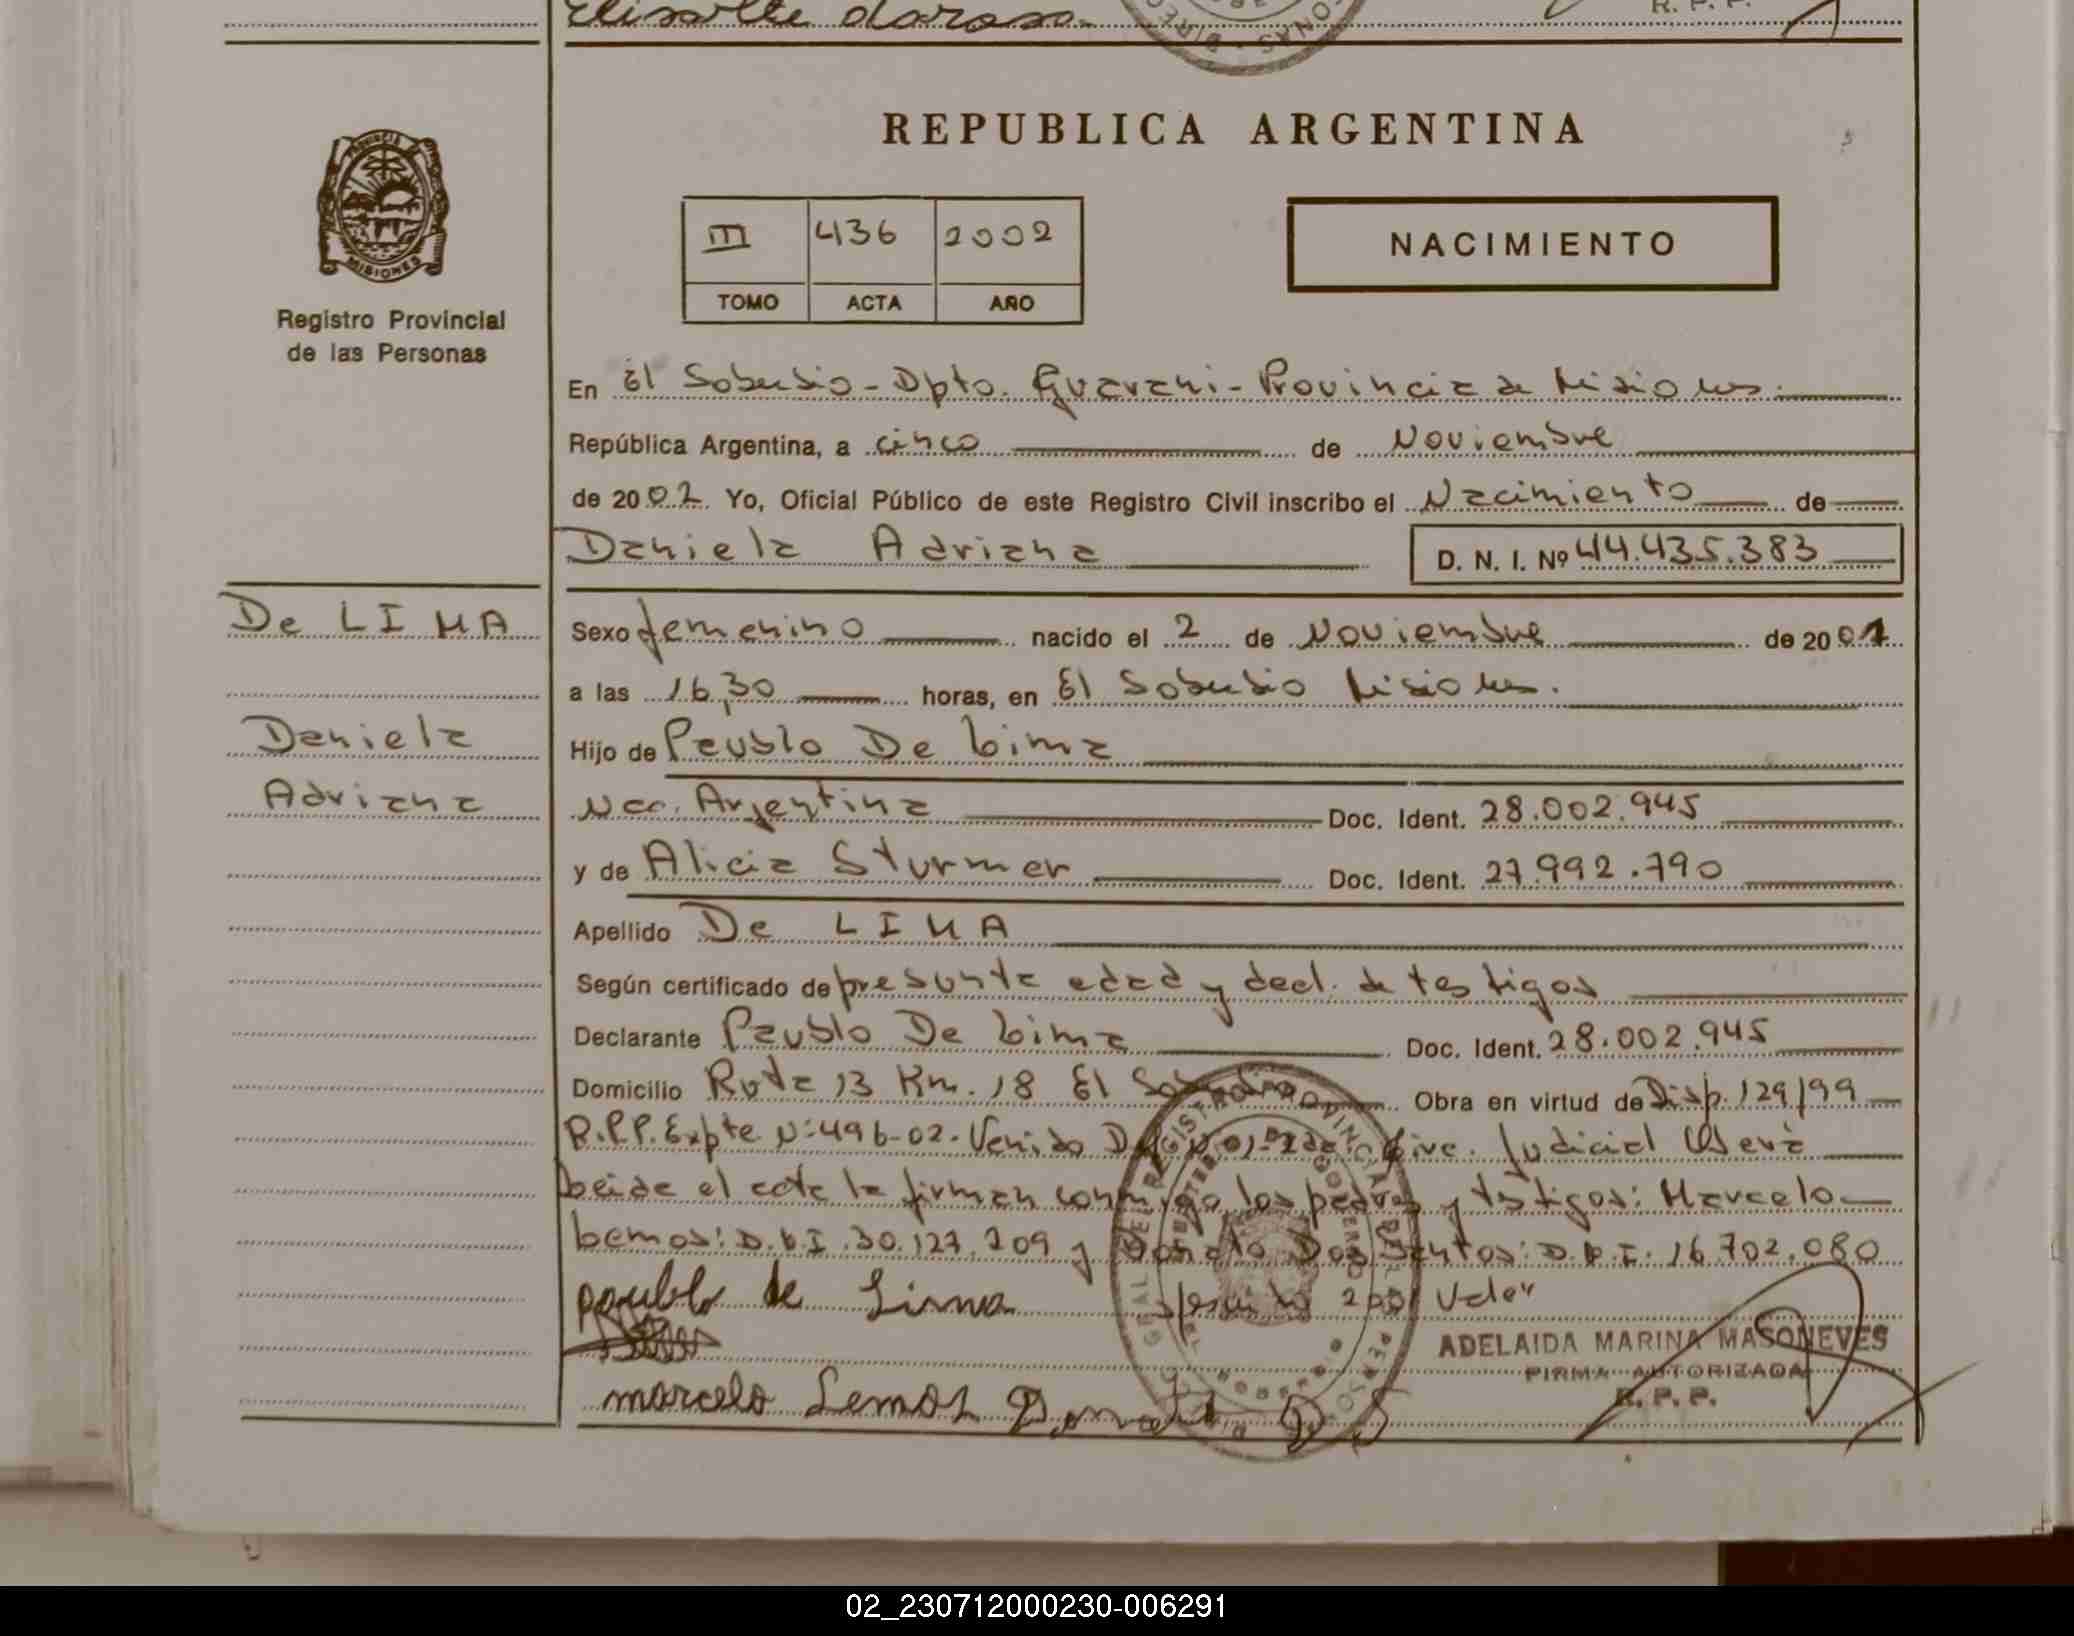 Elisotte
R. P. P.
REPUBLICA ARGENTINA
PROVINCIA
MISIONES
Registro Provincial
de las Personas
III 436 2002
TOMO ACTA AÑO
NACIMIENTO
En El Soberbio - Dpto. Guarani - Provincia de Misiones.
República Argentina, a cinco de Noviembre
de 2002 Yo, Oficial Público de este Registro Civil inscribo el Nacimiento de
Daniela Adriana
D. N. I. Nº 44.435.383
De LIMA
Sexo femenino nacido el 2 de Noviembre de 2001
a las 16,30 horas, en El Soberbio Misiones.
Daniela
Hijo de Paublo De Lima
Adriana
Nac. Argentina Doc. Ident. 28.002.945
y de Alicia Sturmer Doc. Ident. 27.992.790
Apellido De LIMA
Según certificado de presunta edad y decl. de testigos
Declarante Paublo De Lima Doc. Ident. 28.002.945
Domicilio Ruta 13 Km. 18 El Soberbio Obra en virtud de Disp. 129/99
R.P.P. Expte Nº 496-02. Venido Judicial Oberá
Leida el acta la firman conmigo los padres y testigos: Marcelo
Lemos: D.N.I. 30.127.209 y Donato Dos Santos: D.N.I. 16.702.080
paublo de Lima 2001 Vale"
ADELAIDA MARINA MASONEVES
FIRMA AUTORIZADA
R. P. P.
marcelo Lemos Donato D S
02_230712000230-006291